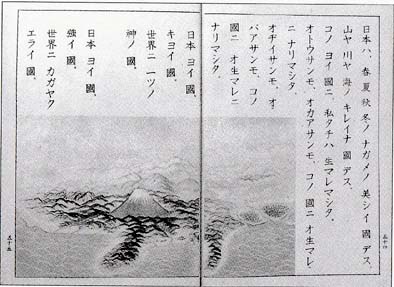 日本ハ、春夏秋冬ノ ナガメノ 美シイ 國 デス。
山ヤ 川ヤ 海ノ キレイナ 國 デス。
コノ ヨイ 國ニ、私タチハ 生マレマシタ。
オトウサンモ、オカアサンモ、コノ 國ニ オ生マレ
ニ ナリマシタ。
オヂイサンモ、オ
バアサンモ、コノ
國ニ オ生マレニ
ナリマシタ。
五十四
日本 ヨイ 國、
キヨイ 國。
世界ニ 一ツノ
神ノ 國。
日本 ヨイ 國、
強イ 國。
世界ニ カガヤク
エライ 國。
五十五